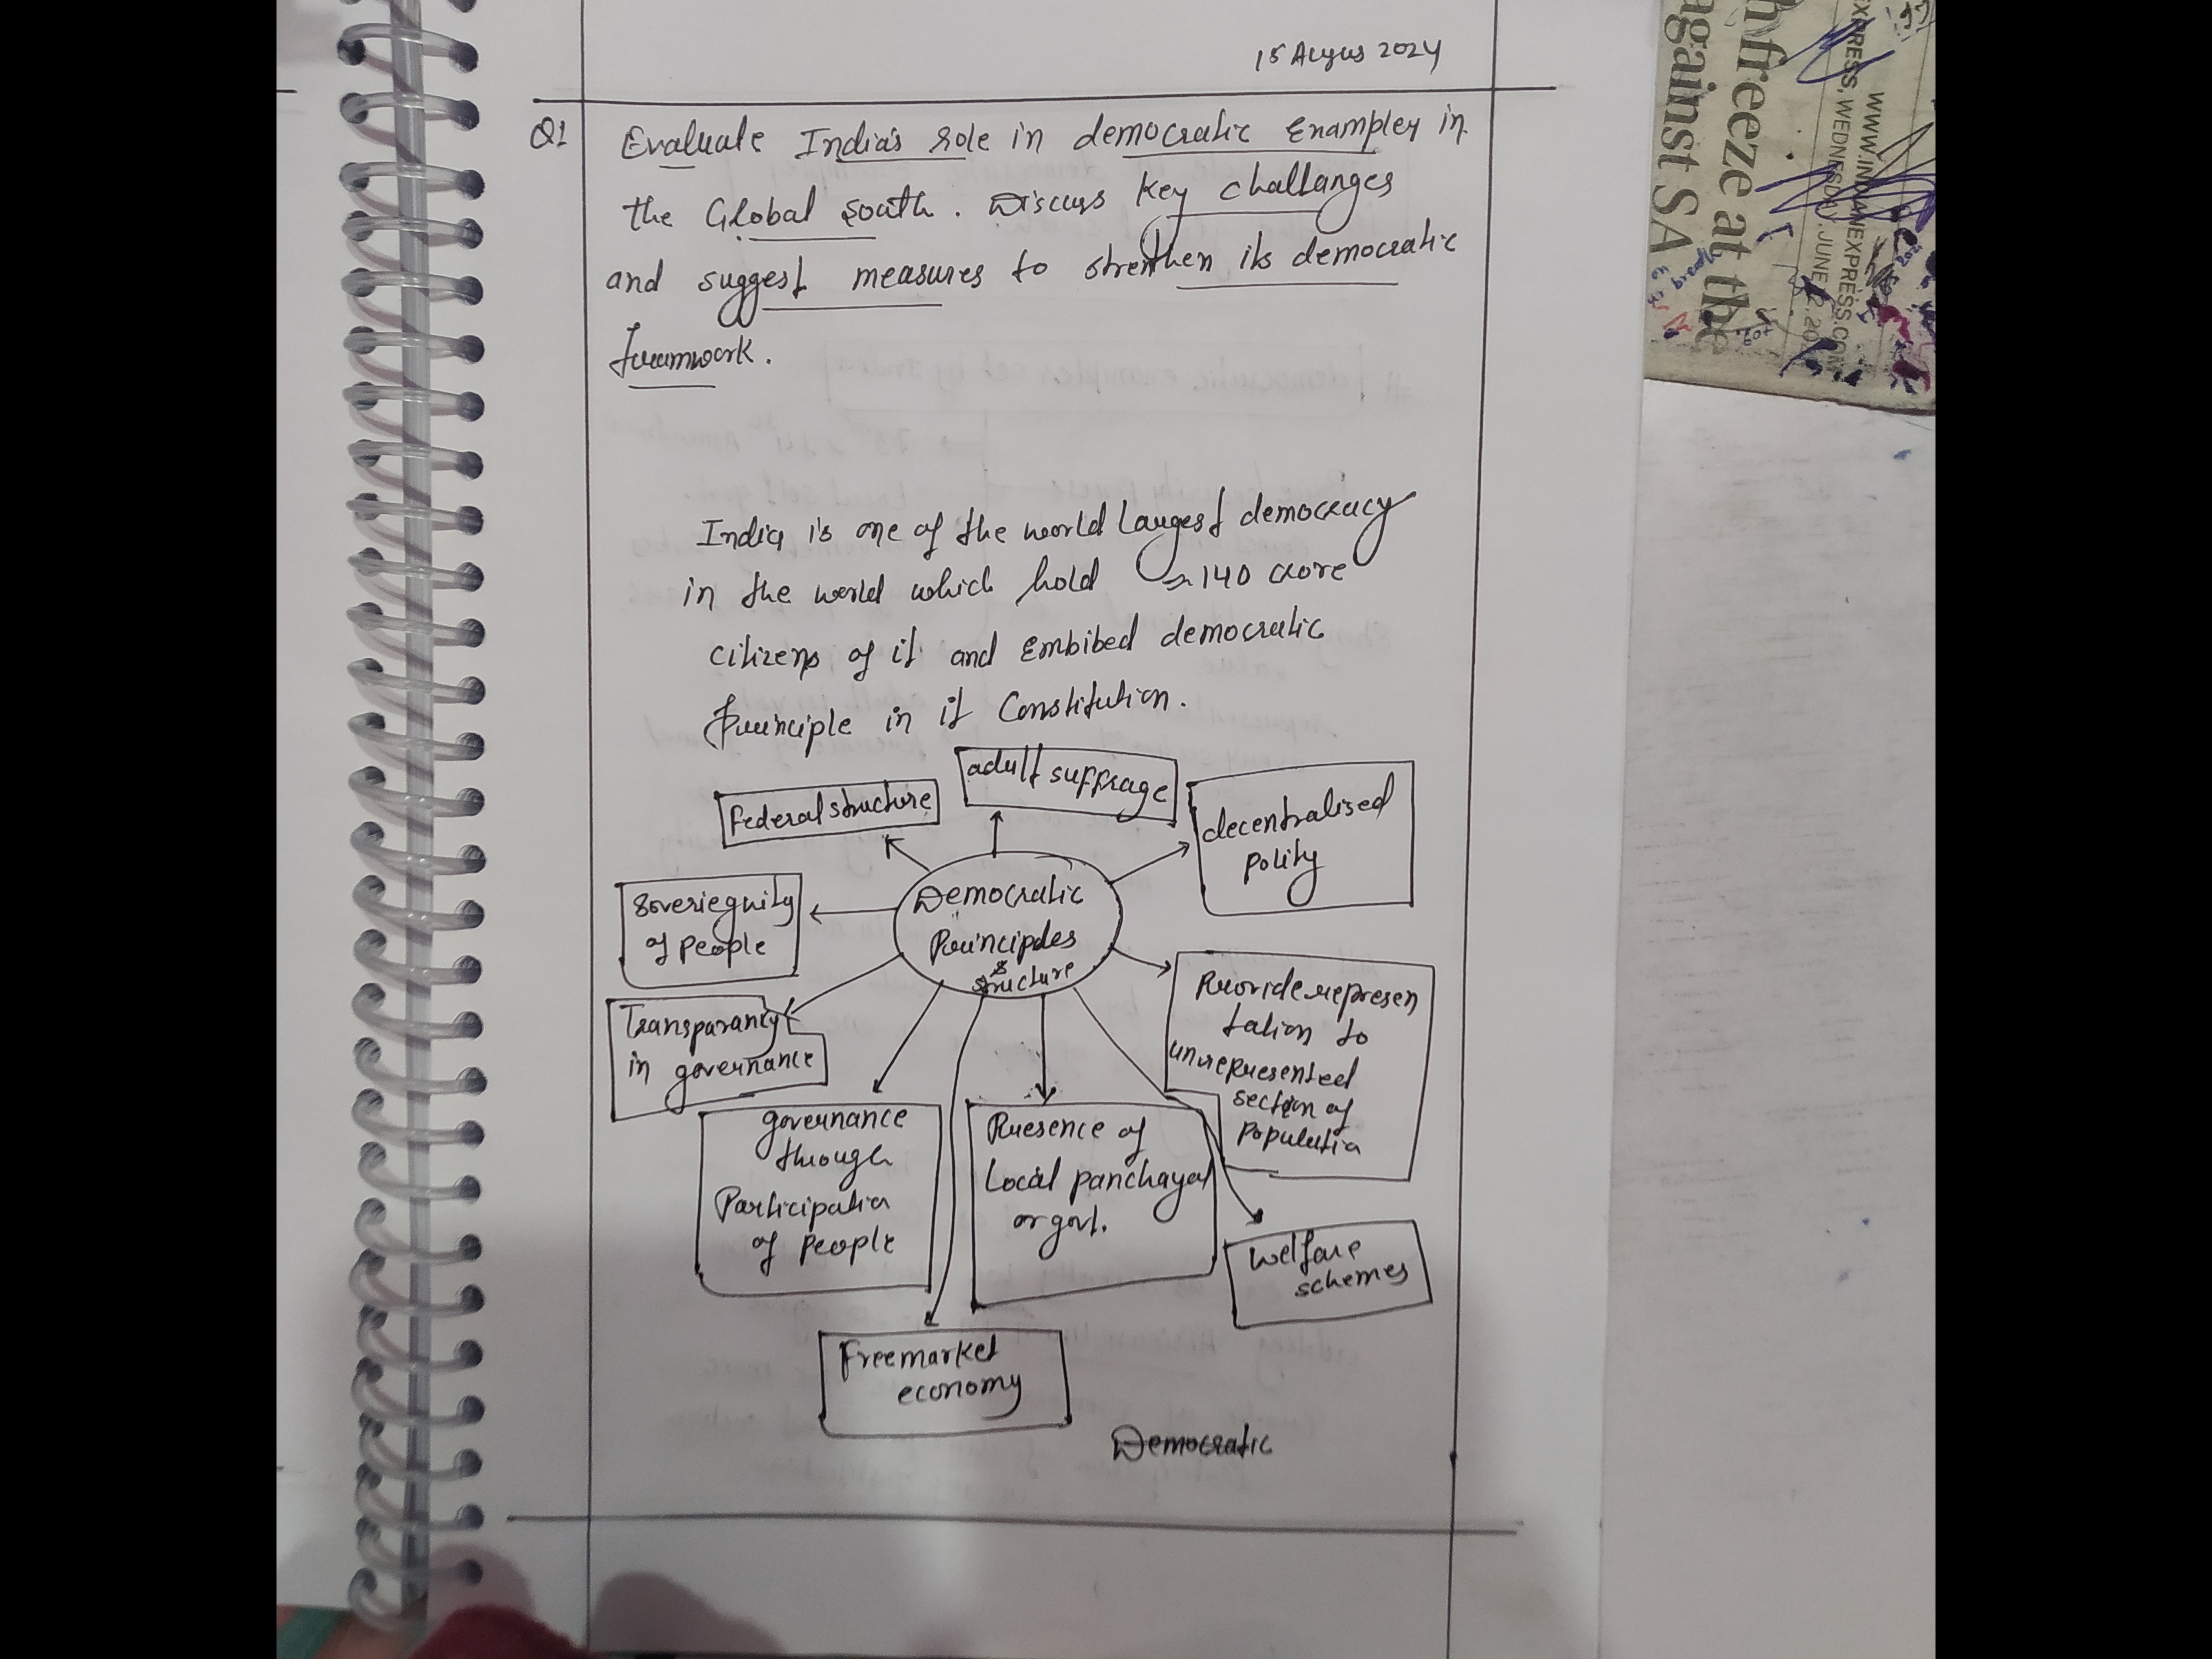 15 Augus 2024
Q1 Evaluate India's role in democratic Examples in
the Global south. Discuss key challanges
and suggest measures to strenthen its democratic
framwork.
India is one of the world Largest democracy
in the world which hold ≈ 140 crore
citizens of it and Embibed democratic
principle in it Constitution.
adult suffrage
Federal structure
decentralised
polity
Soveriegnity
of people
Democratic
Principles
&
structure
Transparancy
in governance
Provide represen
tation to
unrepresented
section of
populatia
governance
through
Participation
of people
Presence of
Local panchayat
or govt.
Welfare
schemes
Freemarket
economy
Democratic
h freeze at the
against SA
WWW.INDIANEXPRESS.COM
EXPRESS, WEDNESDAY, JUNE 12, 20